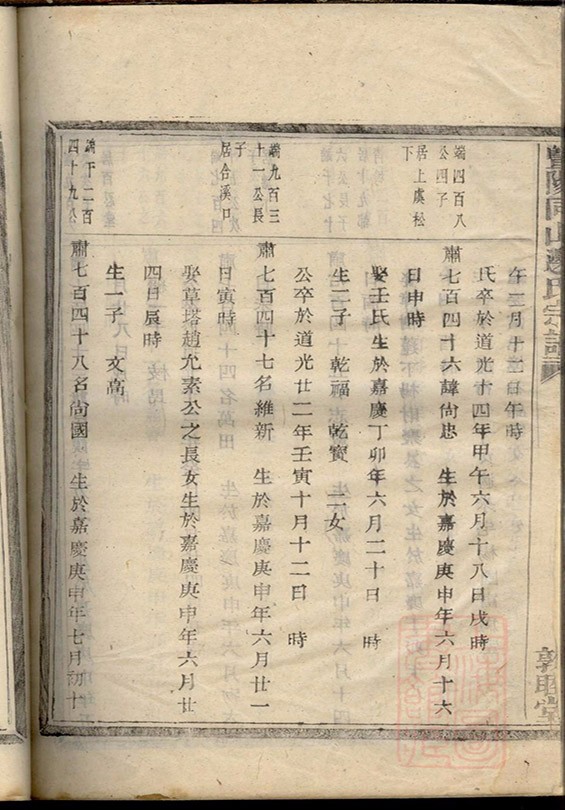 端四百八
公四子
居上虞松
下
端九百三
十一公長
子
居合溪口
端下二百
四十九公
午
月十
日午時
氏卒於道光十四年甲午六月十八日戌時
肅七百四十六諱尚忠 生於嘉慶庚申年六月十六
日申時
娶王氏生於嘉慶丁卯年六月二十日 時
生一子 乾福 乾寶 二女
公卒於道光廿二年壬寅十月十二日 時
肅七百四十七名維新 生於嘉慶庚申年六月廿一
日寅時
娶草塔趙允素公之長女生於嘉慶庚申年六月廿
四日辰時
生一子 文高
肅七百四十八名尚國 生於嘉慶庚申年七月初十